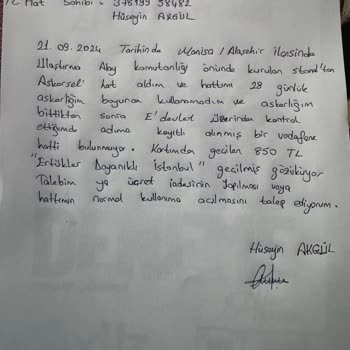 TC Hat Sahibi : 37819958482
Hüseyin AKGÜL
21.09.2024 Tarihinde Manisa / Alaşehir ilçesinde
Ulaştırma Alay komutanlığı önünde kurulan stand'tan
Askarsel hat aldım ve hattımı 28 günlük
askarlığım boyunca kullanamadım ve askarlığım
bittikten sonra E'devlet üzerinden kontrol
ettiğimde adıma kayıtlı alınmış bir vodafone
hattı bulunmuyor. Kartımdan geçilen 850 TL
"Ertükler Dayanıklı İstanbul" geçilmiş gözüküyor
Talebim ya ücret iadesinin yapılması veya
hattımın normal kullanıma açılmasını talep ediyorum.
Hüseyin AKGÜL